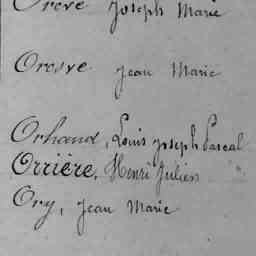 Oreve Joseph Marie
Oresve Jean Marie
Orhand, Louis Joseph Pascal
Orrière, Henri Julien
Ory, Jean Marie